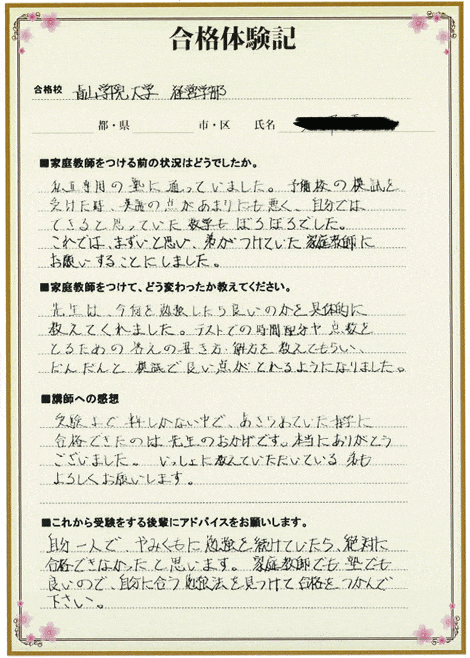 合格体験記
合格校 青山学院大学 経営学部
都・県 市・区 氏名
■家庭教師をつける前の状況はどうでしたか。
私立専用の塾に通っていました。予備校の模試を
受けた時、英語の点があまりにも悪く、自分では
できると思っていた数学もぼろぼろでした。
これでは、まずいと思い、弟がつけていた家庭教師に
お願いすることにしました。
■家庭教師をつけて、どう変わったか教えてください。
先生は、今何を勉強したら良いのかを具体的に
教えてくれました。テストでの時間配分や点数を
とるための答えの書き方・解方を教えてもらい、
だんだんと模試で良い点がとれるようになりました。
■講師への感想
受験まで 料しかない中で、あきらめていた青学に
合格できたのは先生のおかげです。本当にありがとう
ございました。いっしょに教えていただいている弟も
よろしくお願いします。
■これから受験をする後輩にアドバイスをお願いします。
自分一人で、やみくもに勉強を続けていたら、絶対に
合格できなかったと思います。家庭教師でも塾でも
良いので、自分に合う勉強法を見つけて合格をつかんで
下さい。